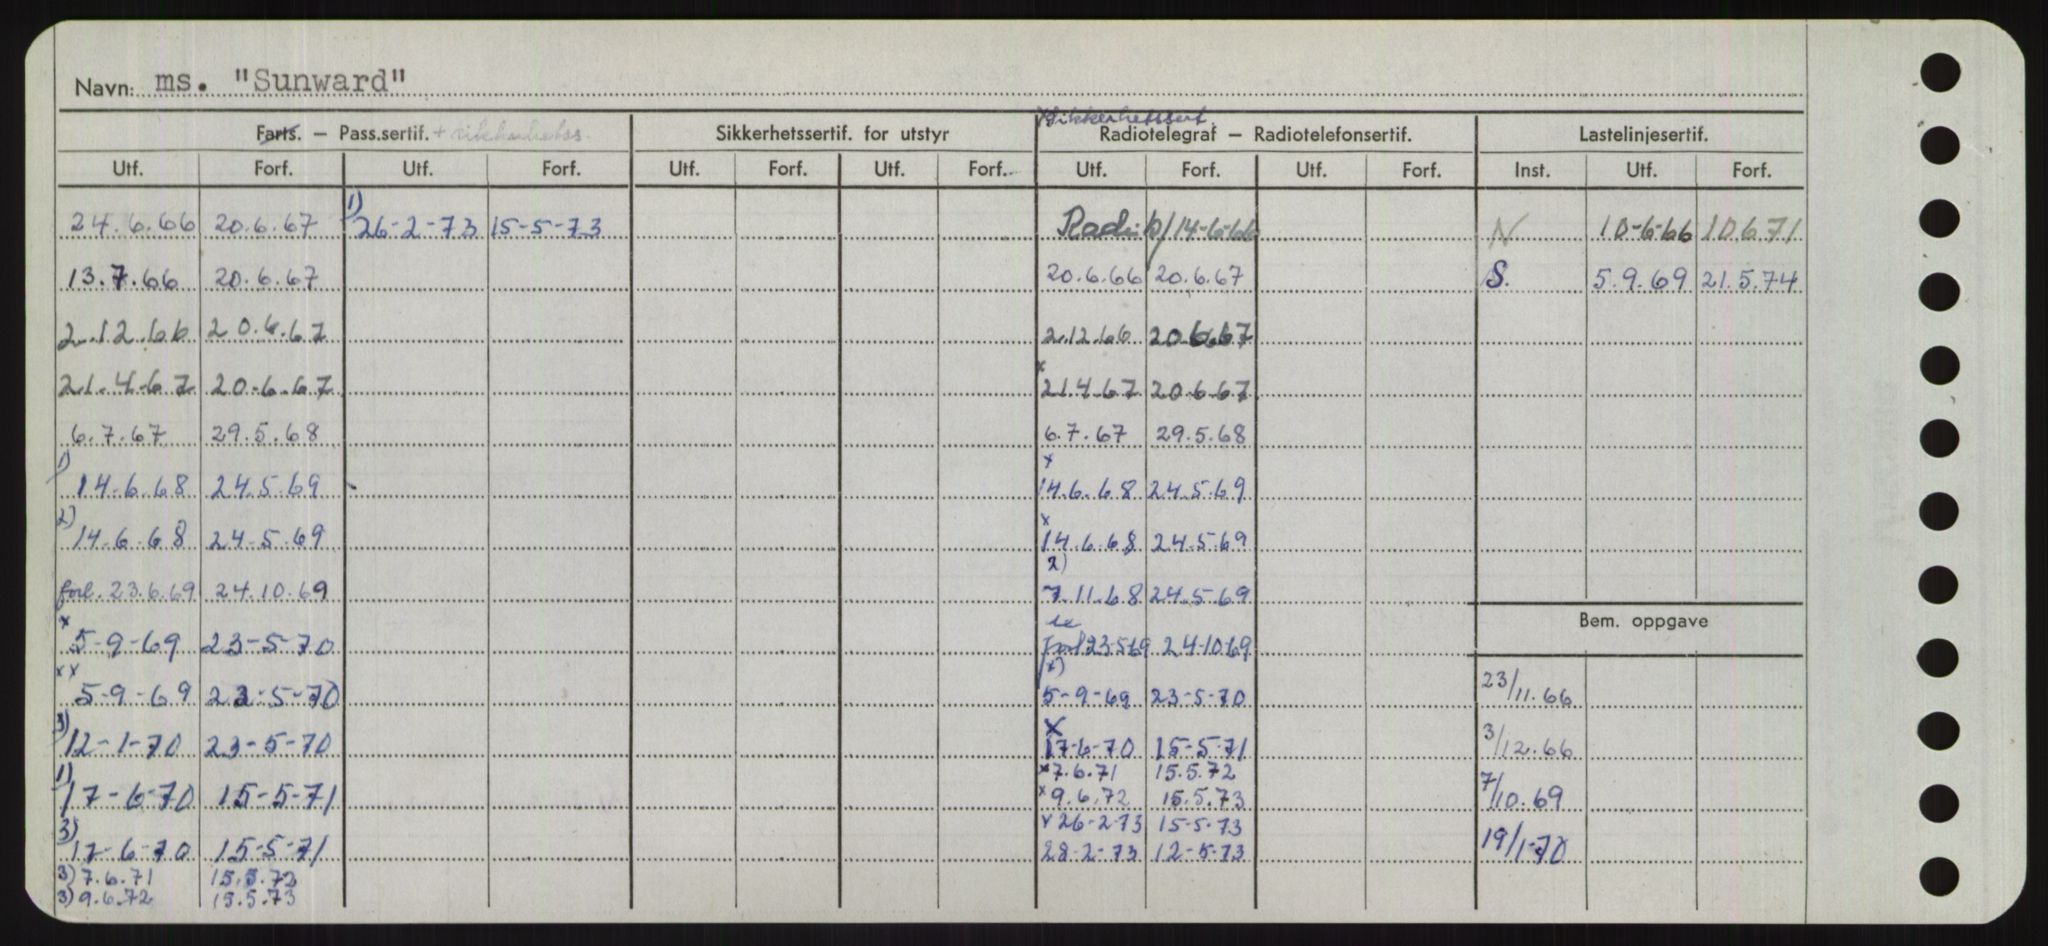 Navn: ms. "Sunward"
Sikkerhetssert.
Farts. — Pass.sertif. + sikkerhetss. Sikkerhetssertif. for utstyr Radiotelegraf — Radiotelefonsertif. Lastelinjesertif.
Utf. Forf. Utf. Forf. Utf. Forf. Utf. Forf. Utf. Forf. Utf. Forf. Inst. Utf. Forf.
24.6.66 20.6.67 1) 26-2-73 15-5-73 Radio b/14-6-66 N 10-6-66 10.6.71
13.7.66 20.6.67 20.6.66 20.6.67 S. 5.9.69 21.5.74
2.12.66 20.6.67 2.12.66 20.6.67
21.4.67 20.6.67 x 21.4.67 20.6.67
6.7.67 29.5.68 6.7.67 29.5.68
1) 14.6.68 24.5.69 x 14.6.68 24.5.69
2) 14.6.68 24-5.69 x 14.6.68 24.5.69
forl. 23.6.69 24.10.69 2) 7.11.68 24.5.69
Bem. oppgave
x 5-9-69 23-5-70 forl 23-5-69 24-10-69
xx 5-9-69 23-5-70 x) 5-9-69 23-5-70 23/11.66
3) 12-1-70 23-5-70 x 17-6-70 15-5-71 3/12.66
x 7.6.71 15.5.72
1) 17-6-70 15-5-71 x 9.6.72 15.5.73 7/10.69
x 26-2-73 15-5-73
3) 17-6-70 15-5-71 28-2-73 12-5-73 19/1-70
3) 7.6.71 15.5.72
3) 9.6.72 15.5.73